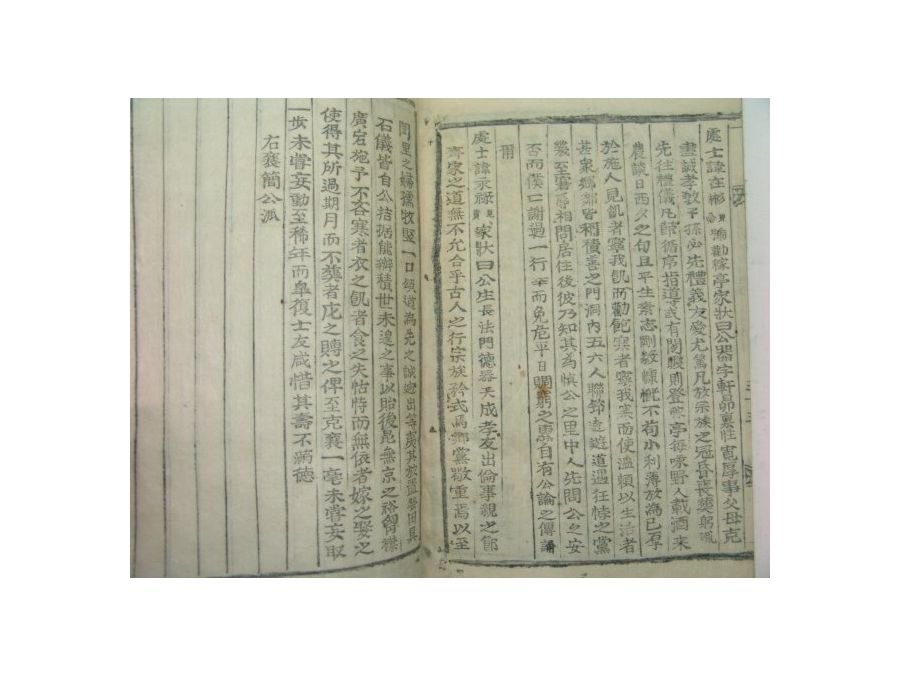 處士諱在彬 號勸稼亭家狀曰公器宇軒昴稟性寬厚事父母克
盡誠孝敎子孫必先禮義友愛尤篤凡於宗族之冠昏喪葬躬
先往禮儀凡節循序指導或有閒暇則登亭每咏野人載酒來
農談日西夕之句且平生素志剛毅慷慨不苟小利薄於爲己厚
於施人見飢者寧我飢而勸飽寒者寧我寒而使溫賴以生活者
甚衆鄕鄰皆稱積善之門洞內五六人聯節遠遊道遇狂悖之黨
至相問居住後彼乃知其爲愼公之里中人先問公之安
否而僕僕謝過一行而免危平日賙窮之惠自有公論之傳誦
用
處士諱永祿 家狀曰公生長法門德器天成孝友出倫事親之節
齊家之道無不允合乎古人之行宗族矜式焉鄕黨敬重焉以至
里之婦孺牧竪一口頌道爲先之誠出等
石儀皆自公拮据能辦積世未遑之事以貽後昆無京之裕
廣宕施予不吝寒者衣之飢者食之失怙恃而無依者嫁之娶之
使得其所過期月而不葬者庀之賻之俾至克襄一毫未嘗妄取
一步未嘗妄動至稀年而皐復士友咸惜其壽不滿德
右襄簡公派